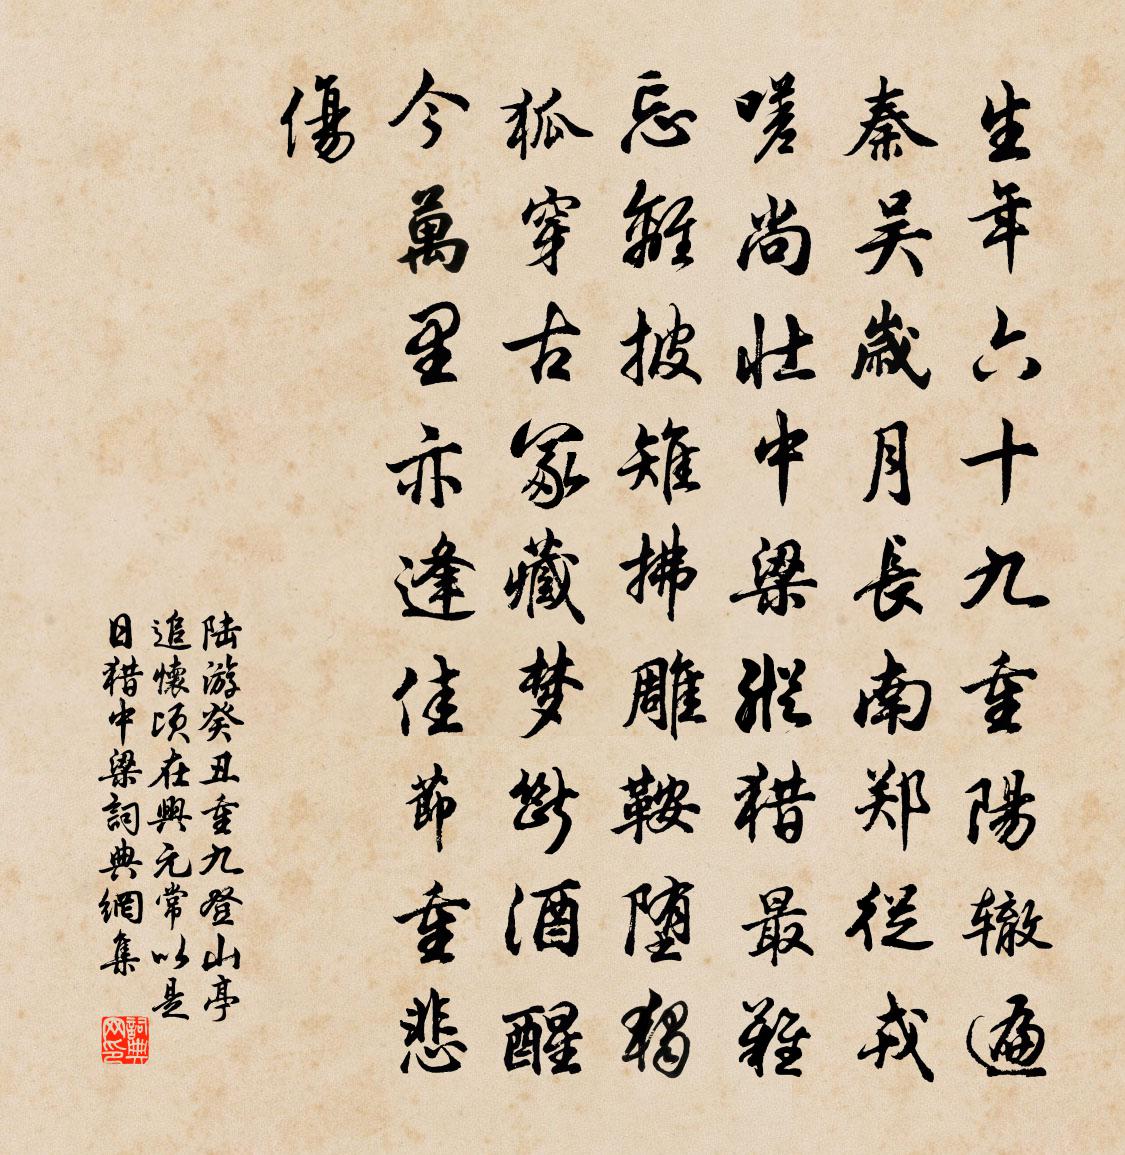 生年六十九重陽轍遍
秦吴歲月長南郑從戎
嗟尚壯中梁縱猎最難
忘離披雉拂雕鞍堕獨
狐穿古冢藏梦斷酒醒
今萬里亦逢佳節重悲
傷
陆游癸丑重九登山亭
追懷頃在興元常以是
日猎中梁詞典網集
詞典
网印